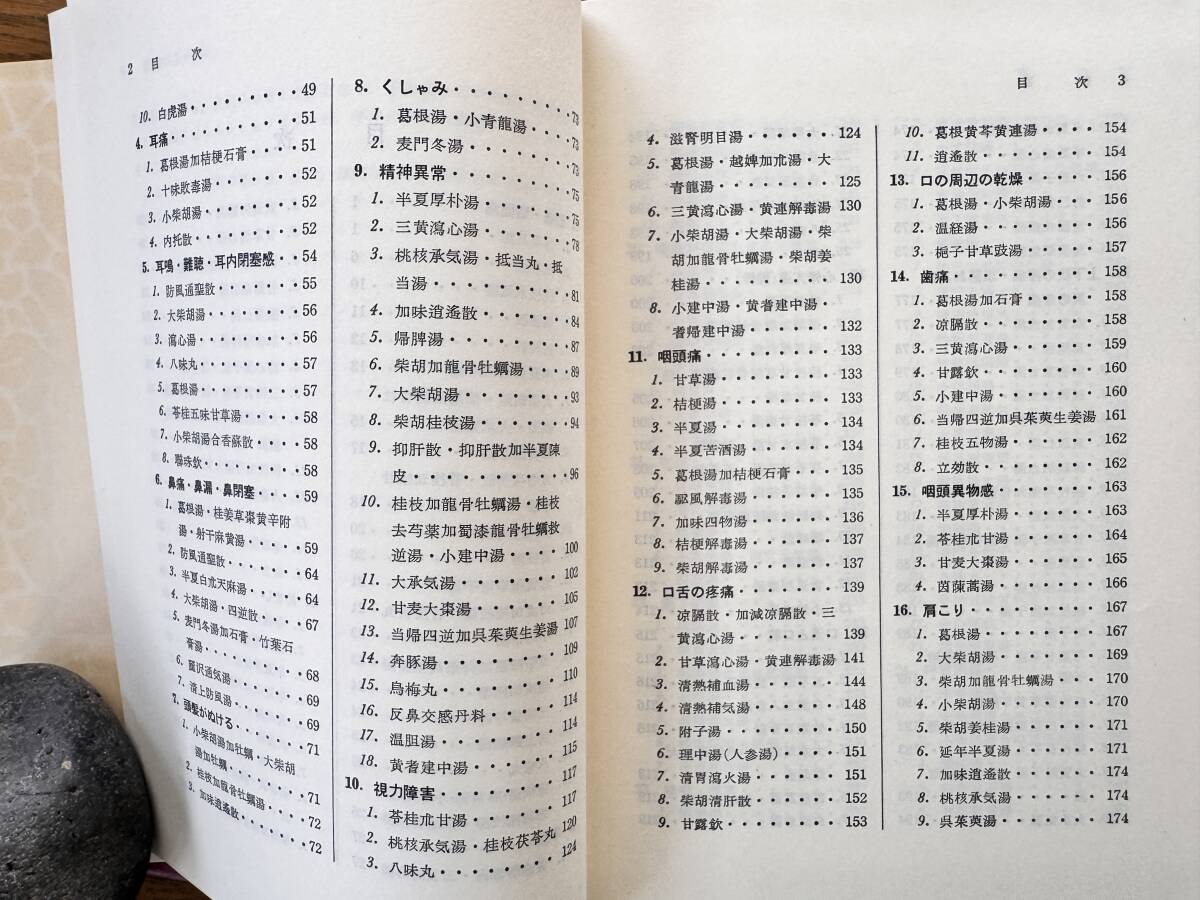 2 目 次
10. 白虎湯・・・・・・・・・49
4. 耳痛・・・・・・・・・・51
1. 葛根湯加桔梗石膏・・・・51
2. 十味敗毒湯・・・・・・・52
3. 小柴胡湯・・・・・・・・52
4. 内托散・・・・・・・・・52
5. 耳鳴・難聴・耳内閉塞感・・54
1. 防風通聖散・・・・・・・55
2. 大柴胡湯・・・・・・・・56
3. 瀉心湯・・・・・・・・・56
4. 八味丸・・・・・・・・・57
5. 葛根湯・・・・・・・・・57
6. 苓桂五味甘草湯・・・・・58
7. 小柴胡湯合香蘇散・・・・58
8. 聯珠飲・・・・・・・・・58
6. 鼻痛・鼻漏・鼻閉塞・・・・59
1. 葛根湯・桂姜草棗黄辛附
湯・射干麻黄湯・・・・・59
2. 防風通聖散・・・・・・・64
3. 半夏白朮天麻湯・・・・・64
4. 大柴胡湯・四逆散・・・・67
5. 麦門冬湯加石膏・竹葉石
膏湯・・・・・・・・・・68
6. 麗沢通気湯・・・・・・・69
7. 清上防風湯・・・・・・・69
7. 頭髪がぬける・・・・・・・71
1. 小柴胡湯加牡蠣・大柴胡
湯加牡蠣・・・・・・・・71
2. 桂枝加龍骨牡蠣湯・・・・72
3. 加味逍遙散・・・・・・・72
8. くしゃみ・・・・・・・・・73
1. 葛根湯・小青龍湯・・・・73
2. 麦門冬湯・・・・・・・・73
9. 精神異常・・・・・・・・・75
1. 半夏厚朴湯・・・・・・・75
2. 三黄瀉心湯・・・・・・・78
3. 桃核承気湯・抵当丸・抵
当湯・・・・・・・・・・81
4. 加味逍遙散・・・・・・・84
5. 帰脾湯・・・・・・・・・87
6. 柴胡加龍骨牡蠣湯・・・・89
7. 大柴胡湯・・・・・・・・93
8. 柴胡桂枝湯・・・・・・・94
9. 抑肝散・抑肝散加半夏陳
皮・・・・・・・・・・・96
10. 桂枝加龍骨牡蠣湯・桂枝
去芍薬加蜀漆龍骨牡蠣救
逆湯・小建中湯・・・・100
11. 大承気湯・・・・・・・102
12. 甘麦大棗湯・・・・・・105
13. 当帰四逆加呉茱萸生姜湯 107
14. 奔豚湯・・・・・・・・109
15. 烏梅丸・・・・・・・・110
16. 反鼻交感丹料・・・・・114
17. 温胆湯・・・・・・・・114
18. 黄耆建中湯・・・・・・115
10. 視力障害・・・・・・・・117
1. 苓桂朮甘湯・・・・・・117
2. 桃核承気湯・桂枝茯苓丸 120
3. 八味丸・・・・・・・・124
目 次 3
4. 滋腎明目湯・・・・・・・124
5. 葛根湯・越婢加朮湯・大
青龍湯・・・・・・・・・125
6. 三黄瀉心湯・黄連解毒湯 130
7. 小柴胡湯・大柴胡湯・柴
胡加龍骨牡蠣湯・柴胡姜
桂湯・・・・・・・・・・130
8. 小建中湯・黄耆建中湯・
耆帰建中湯・・・・・・・132
11. 咽頭痛・・・・・・・・・133
1. 甘草湯・・・・・・・・・133
2. 桔梗湯・・・・・・・・・133
3. 半夏湯・・・・・・・・・134
4. 半夏苦酒湯・・・・・・・134
5. 葛根湯加桔梗石膏・・・・135
6. 駆風解毒湯・・・・・・・135
7. 加味四物湯・・・・・・・136
8. 桔梗解毒湯・・・・・・・137
9. 柴胡解毒湯・・・・・・・137
12. 口舌の疼痛・・・・・・・139
1. 凉膈散・加減凉膈散・三
黄瀉心湯・・・・・・・・139
2. 甘草瀉心湯・黄連解毒湯 141
3. 清熱補血湯・・・・・・・144
4. 清熱補気湯・・・・・・・148
5. 附子湯・・・・・・・・・150
6. 理中湯(人参湯)・・・・・151
7. 清胃瀉火湯・・・・・・・151
8. 柴胡清肝散・・・・・・・152
9. 甘露飲・・・・・・・・・153
10. 葛根黄芩黄連湯・・・・154
11. 逍遙散・・・・・・・・154
13. 口の周辺の乾燥・・・・・156
1. 葛根湯・小柴胡湯・・・156
2. 温経湯・・・・・・・・156
3. 梔子甘草豉湯・・・・・157
14. 歯痛・・・・・・・・・・158
1. 葛根湯加石膏・・・・・158
2. 凉膈散・・・・・・・・158
3. 三黄瀉心湯・・・・・・159
4. 甘露飲・・・・・・・・160
5. 小建中湯・・・・・・・160
6. 当帰四逆加呉茱萸生姜湯 161
7. 桂枝五物湯・・・・・・162
8. 立効散・・・・・・・・162
15. 咽頭異物感・・・・・・・163
1. 半夏厚朴湯・・・・・・163
2. 苓桂朮甘湯・・・・・・164
3. 甘麦大棗湯・・・・・・165
4. 茵蔯蒿湯・・・・・・・166
16. 肩こり・・・・・・・・・167
1. 葛根湯・・・・・・・・167
2. 大柴胡湯・・・・・・・169
3. 柴胡加龍骨牡蠣湯・・・170
4. 小柴胡湯・・・・・・・170
5. 柴胡姜桂湯・・・・・・171
6. 延年半夏湯・・・・・・171
7. 加味逍遙散・・・・・・174
8. 桃核承気湯・・・・・・174
9. 呉茱萸湯・・・・・・・174